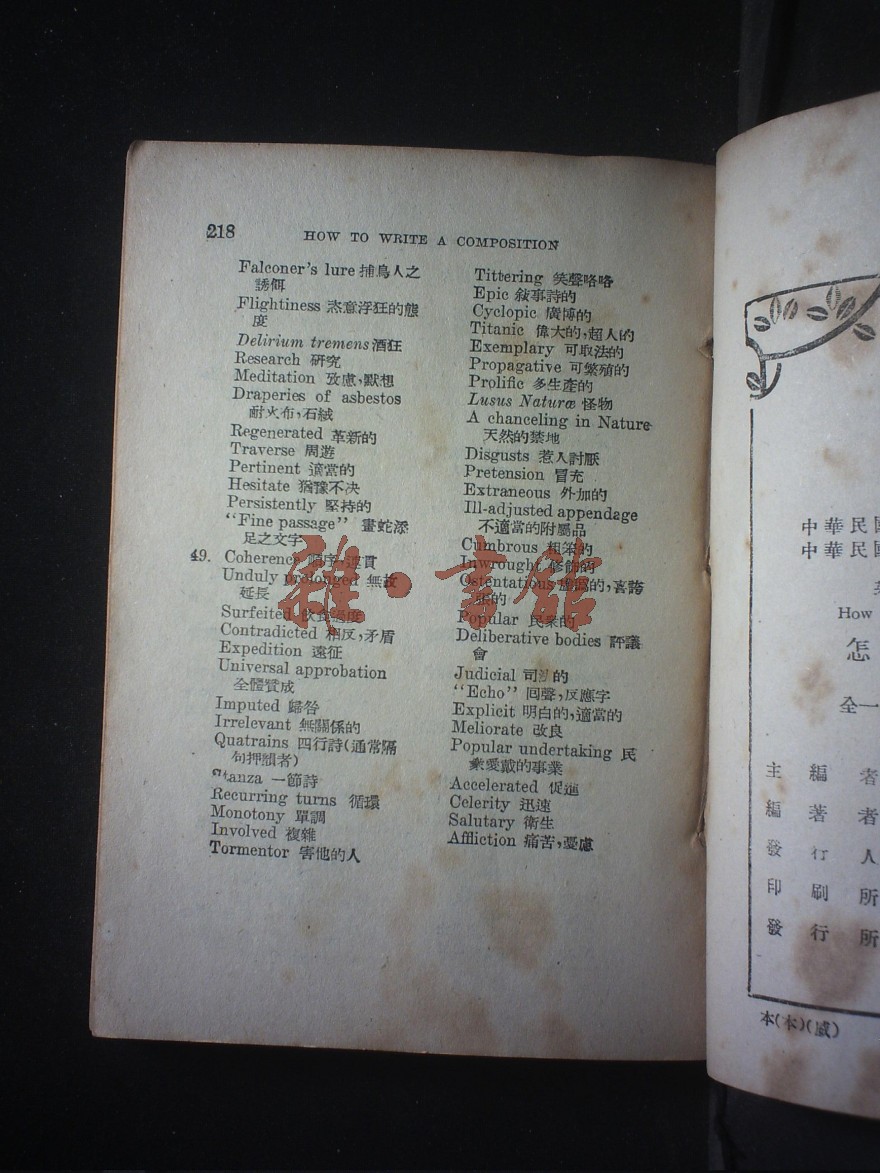 218
HOW TO WRITE A COMPOSITION
Falconer's lure 捕鳥人之
誘餌
Flightiness 恣意浮狂的態
度
Delirium tremens 酒狂
Research 研究
Meditation 攷慮,默想
Draperies of asbestos
耐火布,石絨
Regenerated 革新的
Traverse 周遊
Pertinent 適當的
Hesitate 猶豫不决
Persistently 堅持的
"Fine passage" 畫蛇添
足之文字
49. Coherence 順序,連貫
Unduly prolonged 無故
延長
Surfeited 飲食過度
Contradicted 相反,矛盾
Expedition 遠征
Universal approbation
全體贊成
Imputed 歸咎
Irrelevant 無關係的
Quatrains 四行詩(通常隔
句押韻者)
Stanza 一節詩
Recurring turns 循環
Monotony 單調
Involved 複雜
Tormentor 害他的人
Tittering 笑聲咯咯
Epic 敍事詩的
Cyclopic 廣博的
Titanic 偉大的,超人的
Exemplary 可取法的
Propagative 可繁殖的
Prolific 多生產的
Lusus Naturæ 怪物
A chanceling in Nature
天然的禁地
Disgusts 惹人討厭
Pretension 冒充
Extraneous 外加的
Ill-adjusted appendage
不適當的附屬品
Cumbrous 粗笨的
Inwrought 修飾的
Ostentatious 的,喜誇
的
Popular 民衆的
Deliberative bodies 評議
會
Judicial 司法的
"Echo" 回聲,反應字
Explicit 明白的,適當的
Meliorate 改良
Popular undertaking 民
衆愛戴的事業
Accelerated 促進
Celerity 迅速
Salutary 衛生
Affliction 痛苦,憂慮
雜·書館
中華民國
中華民國
How
怎
全一
主編者
編著者
發行人
印刷所
發行所
本(本)(威)